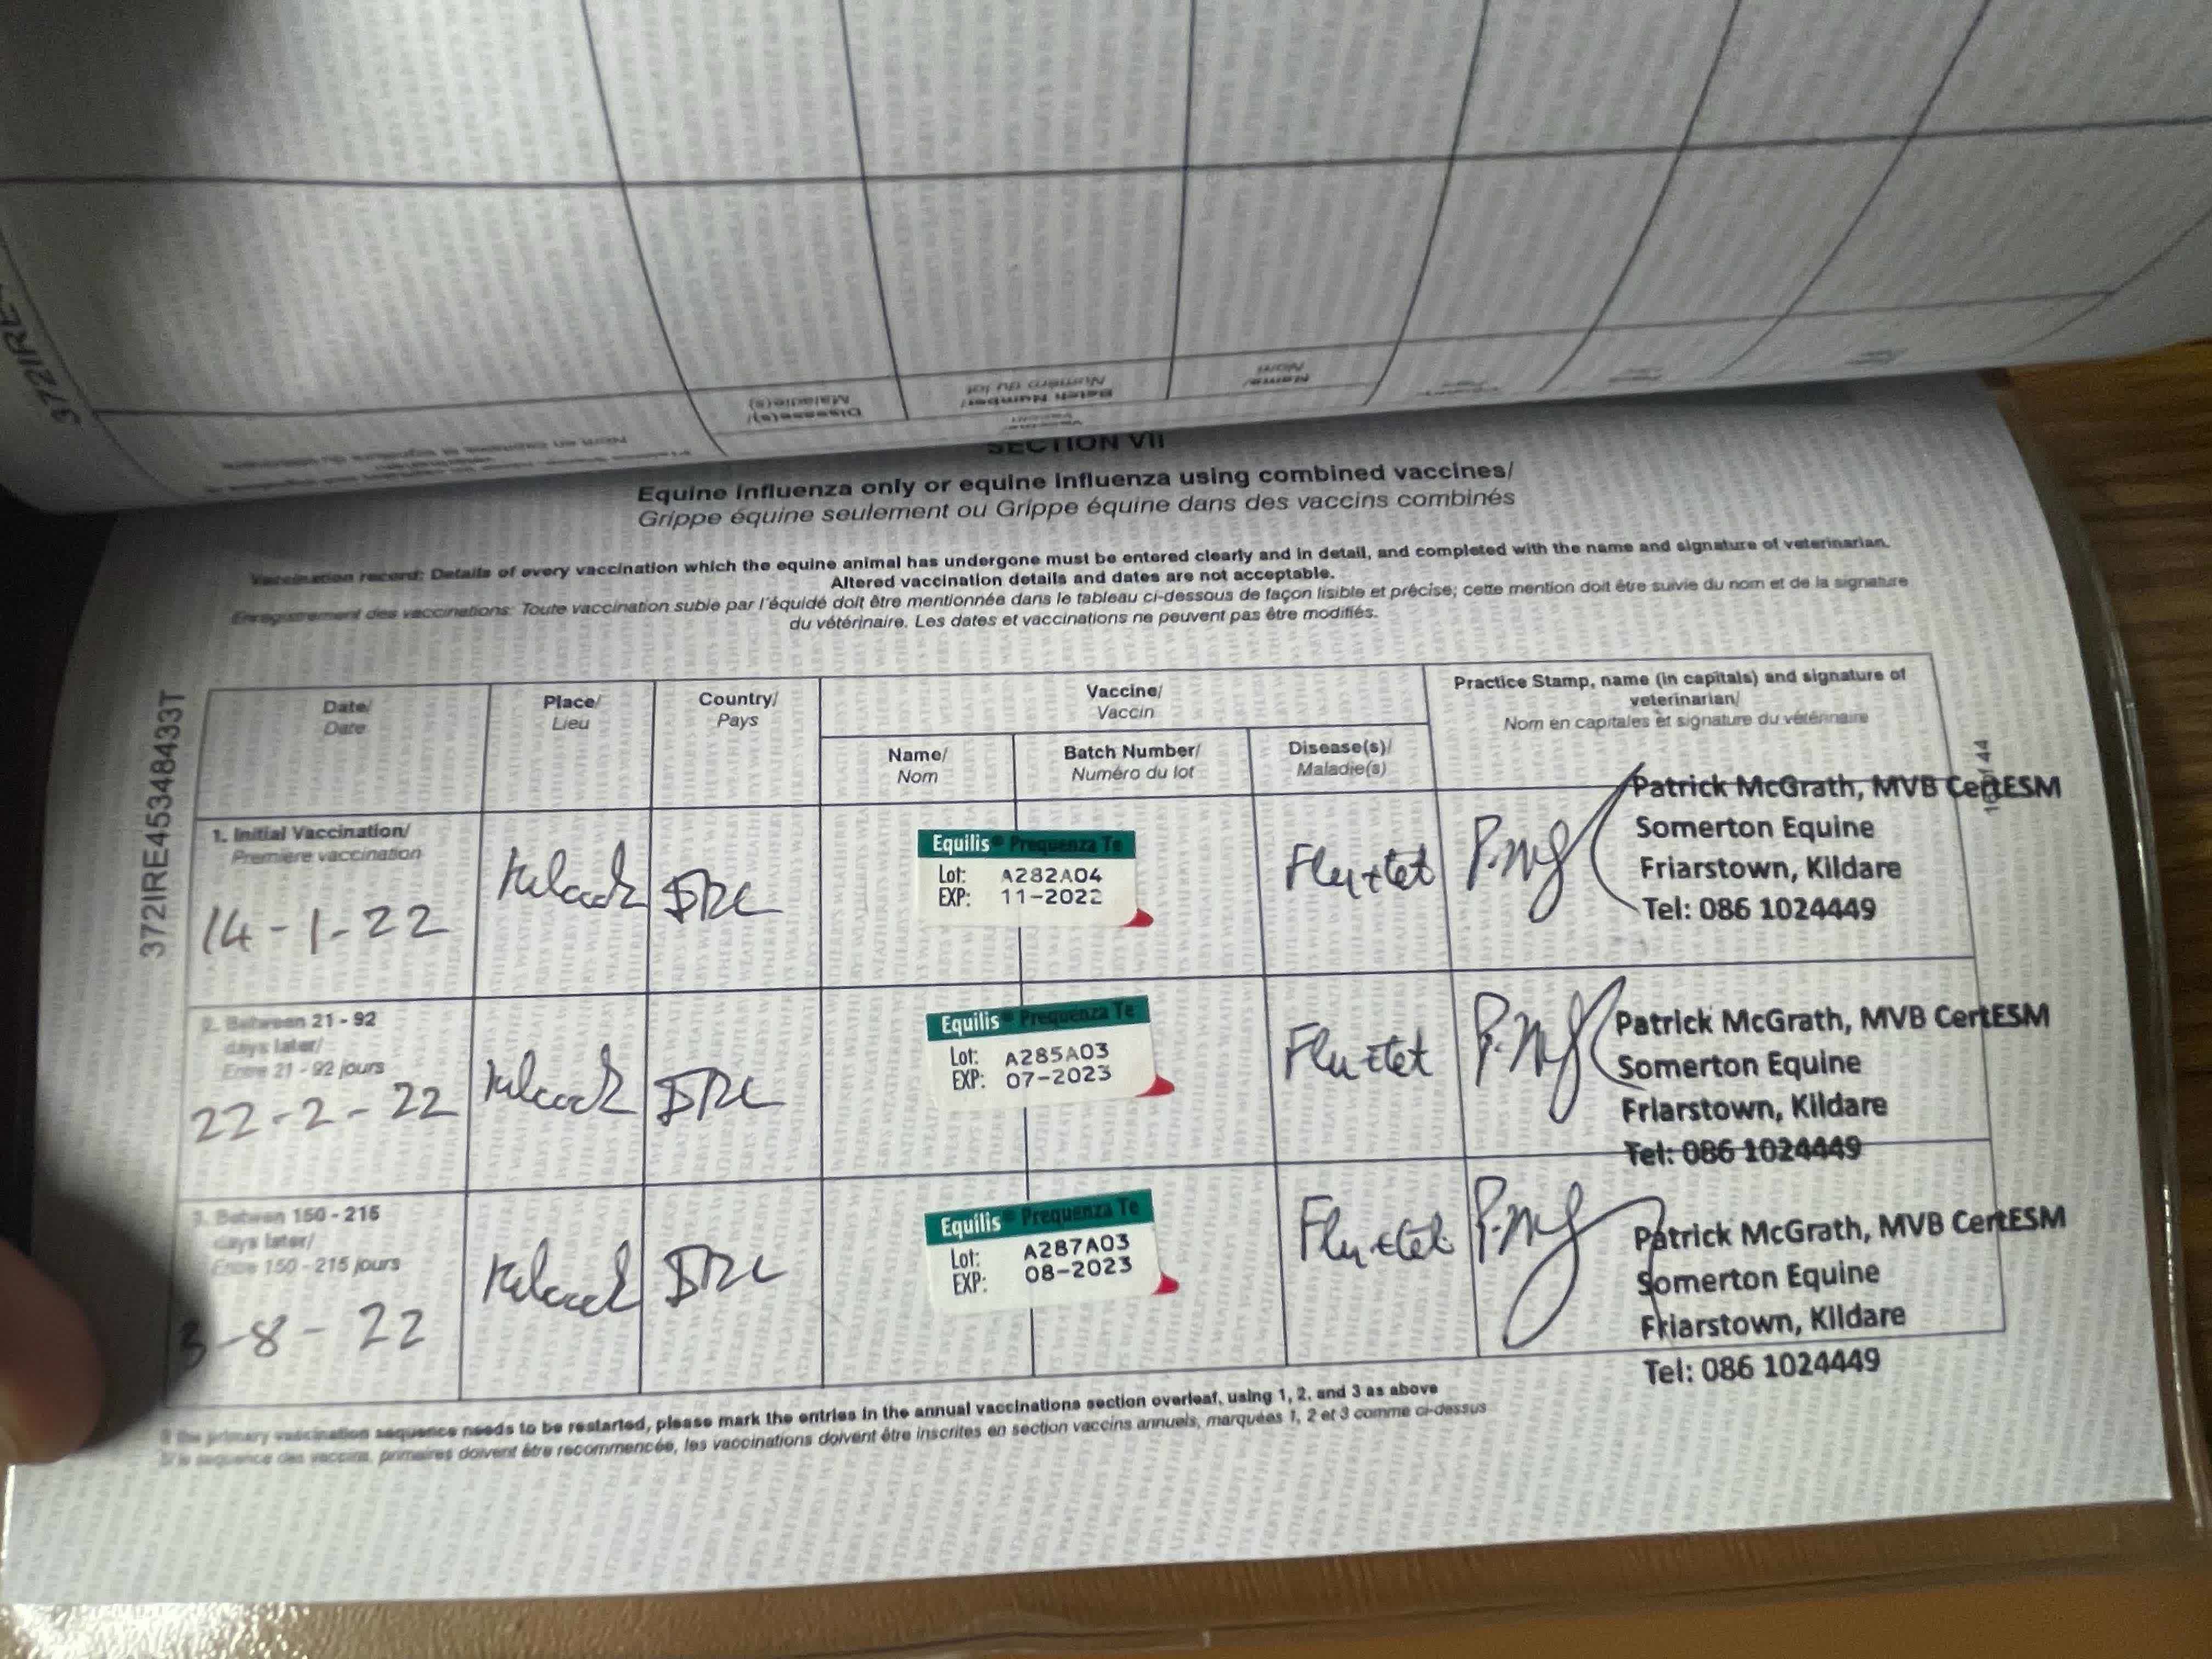 372IRE
Nom en capitales et signature du vétérinaire
Disease(s)/
Maladie(s)
Batch Number/
Numéro du lot
Name/
Nom
Vaccine/
Vaccin
SECTION VII
Equine influenza only or equine influenza using combined vaccines/
Grippe équine seulement ou Grippe équine dans des vaccins combinés
Vaccination record: Details of every vaccination which the equine animal has undergone must be entered clearly and in detail, and completed with the name and signature of veterinarian.
Altered vaccination details and dates are not acceptable.
Enregistrement des vaccinations: Toute vaccination subie par l'équidé doit être mentionnée dans le tableau ci-dessous de façon lisible et précise; cette mention doit être suivie du nom et de la signature
du vétérinaire. Les dates et vaccinations ne peuvent pas être modifiés.
372IRE45348433T
Date/
Date
Place/
Lieu
Country/
Pays
Vaccine/
Vaccin
Name/
Nom
Batch Number/
Numéro du lot
Disease(s)/
Maladie(s)
Practice Stamp, name (in capitals) and signature of
veterinarian/
Nom en capitales et signature du vétérinaire
1. Initial Vaccination/
Première vaccination
14-1-22
Kilcock
IRE
Equilis® Prequenza Te
Lot: A282A04
EXP: 11-2022
Flu+tet
P.McG
Patrick McGrath, MVB CertESM
Somerton Equine
Friarstown, Kildare
Tel: 086 1024449
2. Between 21 - 92
days later/
Entre 21 - 92 jours
22-2-22
Kilcock
IRE
Equilis® Prequenza Te
Lot: A285A03
EXP: 07-2023
Flu+tet
P.McG
Patrick McGrath, MVB CertESM
Somerton Equine
Friarstown, Kildare
Tel: 086 1024449
3. Betwen 150 - 215
days later/
Entre 150 - 215 jours
3-8-22
Kilcock
IRE
Equilis® Prequenza Te
Lot: A287A03
EXP: 08-2023
Flu+tet
P.McG
Patrick McGrath, MVB CertESM
Somerton Equine
Friarstown, Kildare
Tel: 086 1024449
If the primary vaccination sequence needs to be restarted, please mark the entries in the annual vaccinations section overleaf, using 1, 2, and 3 as above
Si la sequence des vaccins, primaires doivent être recommencée, les vaccinations doivent être inscrites en section vaccins annuels, marquées 1, 2 et 3 comme ci-dessus